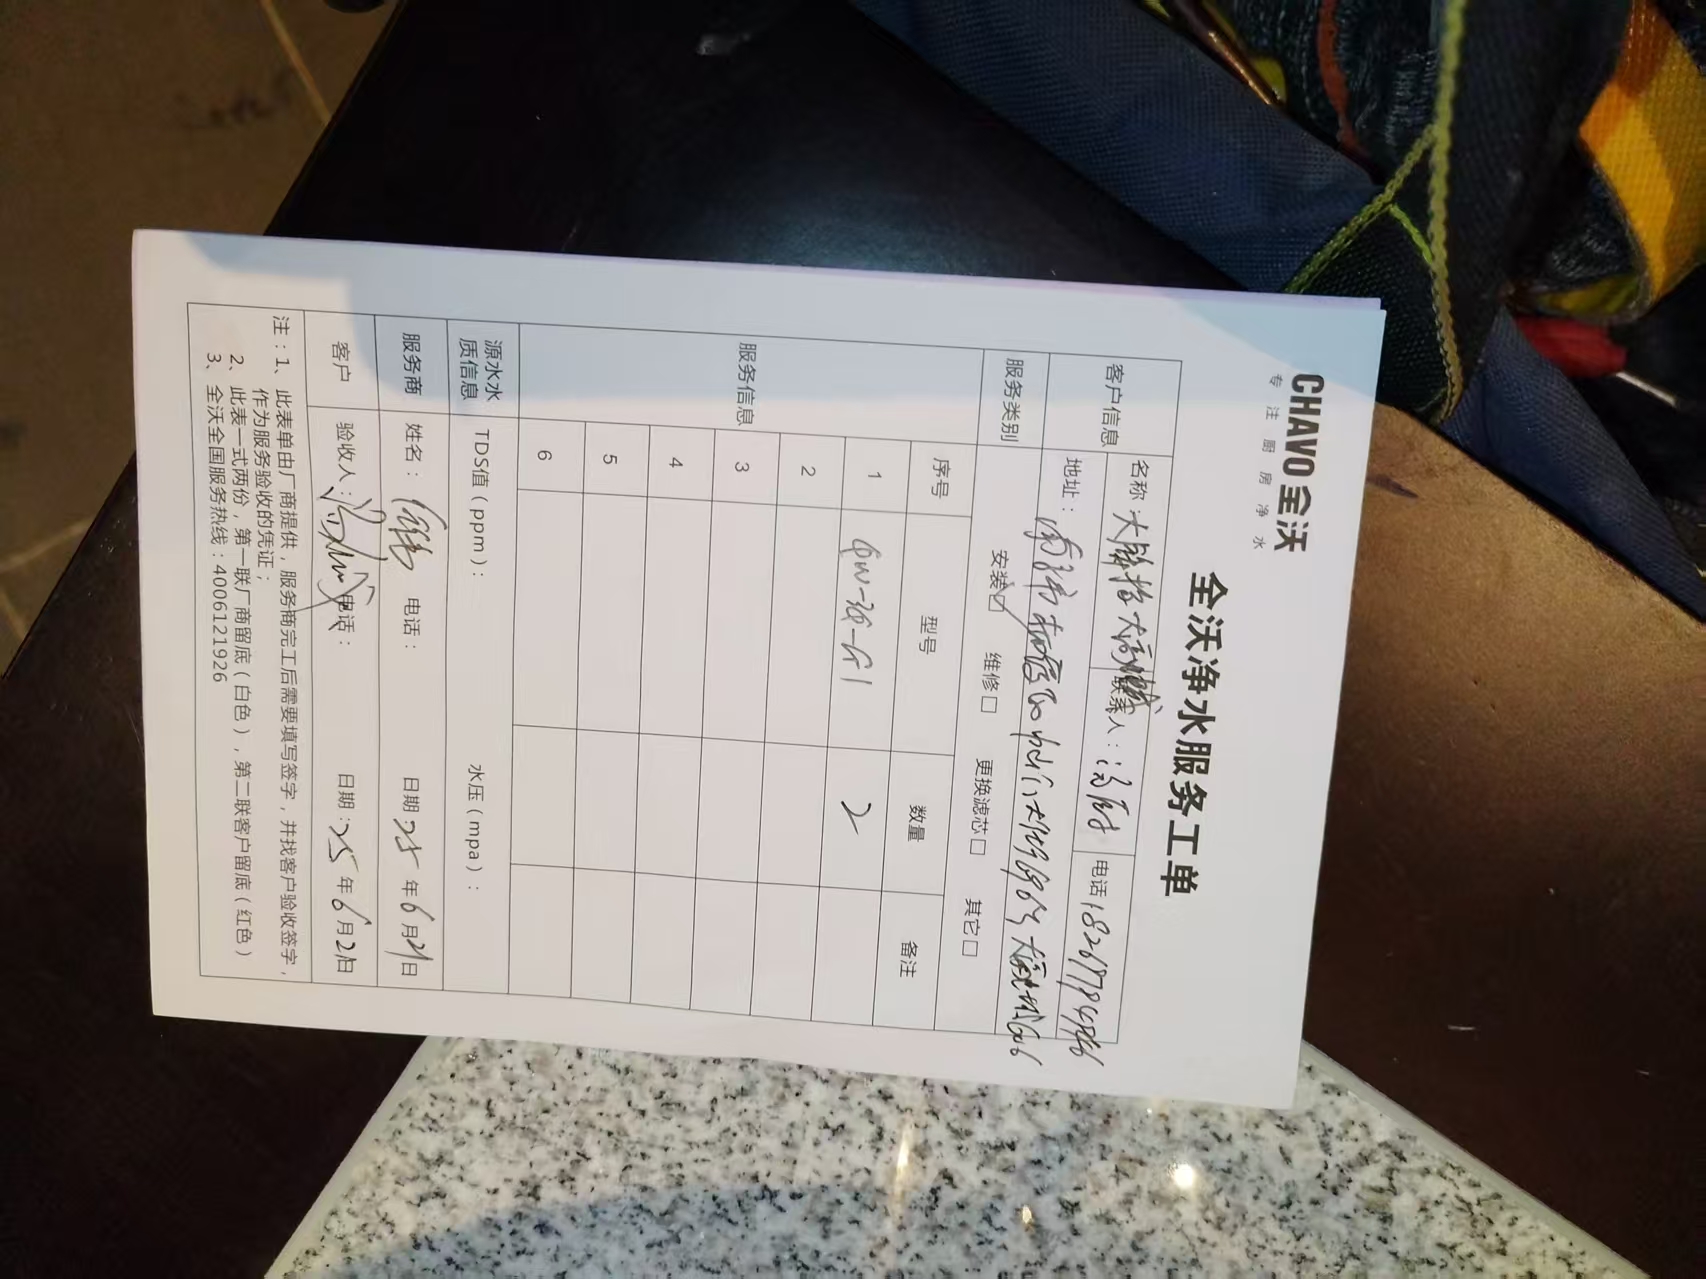 CHAVO 全沃
专注厨房净水
全沃净水服务工单
客户信息 名称 大 联系人： 电话 18267784886
地址：
服务类别 安装☑ 维修□ 更换滤芯□ 其它□
服务信息 序号 型号 数量 备注
1 2
2
3
4
5
6
源水水质信息 TDS值（ppm）： 水压（mpa）：
服务商 姓名： 电话： 日期：25年6月21日
客户 验收人： 电话： 日期：25年6月21日
注：1、此表单由厂商提供，服务商完工后需要填写签字，并找客户验收签字，
作为服务验收的凭证；
2、此表一式两份，第一联厂商留底（白色），第二联客户留底（红色）
3、全沃全国服务热线：4006121926